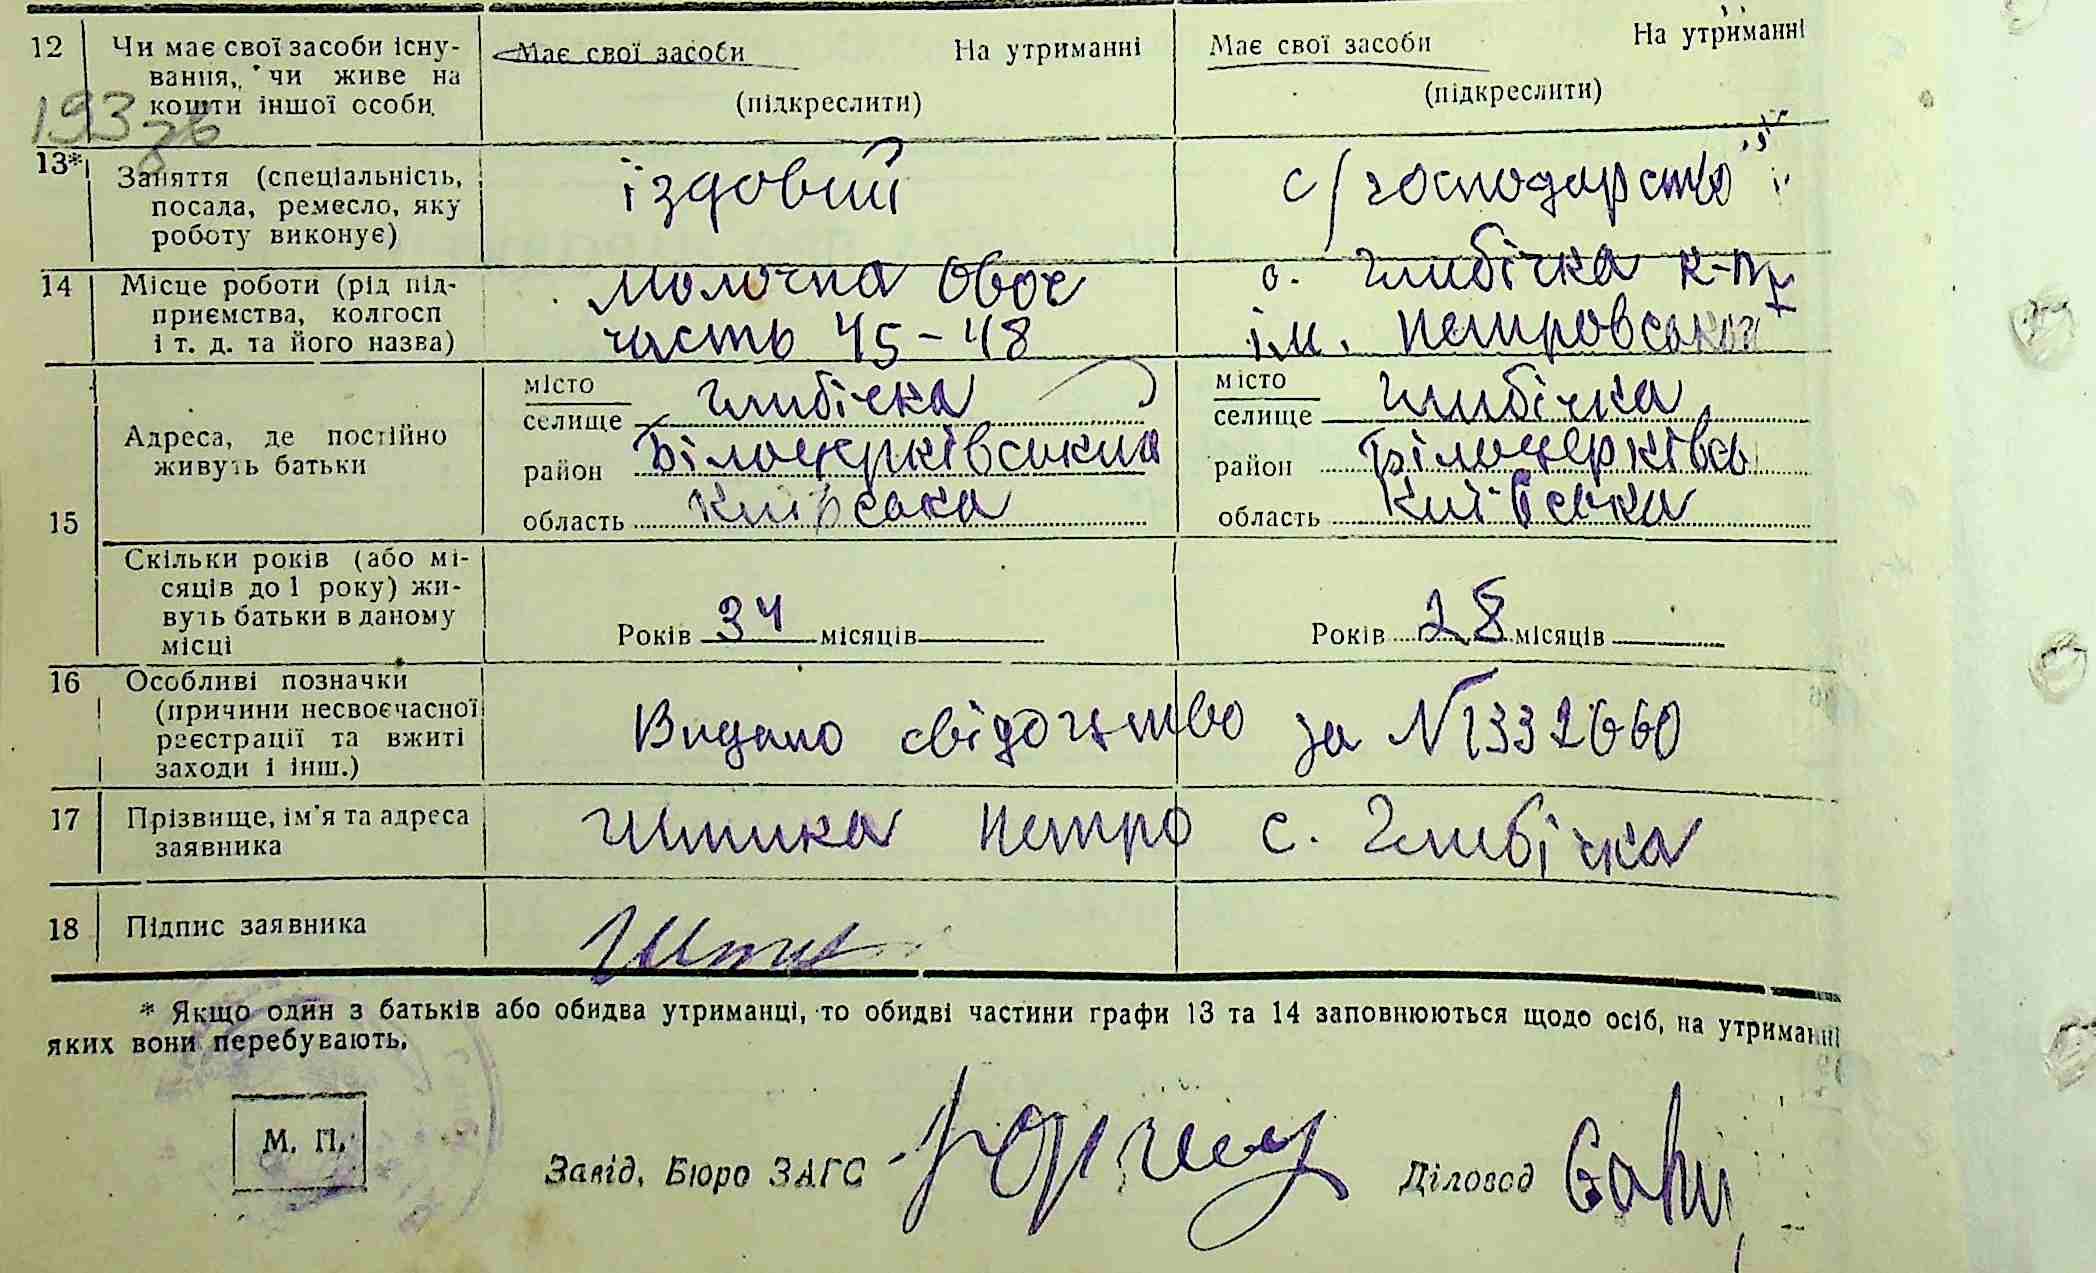 12 Чи має свої засоби існування, чи живе на кошти іншої особи
Має свої засоби На утриманні
(підкреслити)
Має свої засоби На утриманні
(підкреслити)
193
13* Заняття (спеціальність, посада, ремесло, яку роботу виконує)
їздовий
с/господарство
14 Місце роботи (рід підприємства, колгосп і т. д. та його назва)
Молочна Овоч
часть 45-48
с. Глибічка к-п
ім. Петровського
15 Адреса, де постійно живуть батьки
місто
селище Глибічка
район Білоцерківський
область Київська
місто
селище Глибічка
район Білоцерківсь
область Київська
Скільки років (або місяців до 1 року) живуть батьки в даному місці
Років 34 місяців
Років 28 місяців
16 Особливі позначки (причини несвоєчасної реєстрації та вжиті заходи і інш.)
Видано свідоцтво за №1332660
17 Прізвище, ім'я та адреса заявника
Петро с. Глибічка
18 Підпис заявника
* Якщо один з батьків або обидва утриманці, то обидві частини графи 13 та 14 заповнюються щодо осіб, на утриманні
яких вони перебувають.
М. П.
Завід. Бюро ЗАГС
Діловод